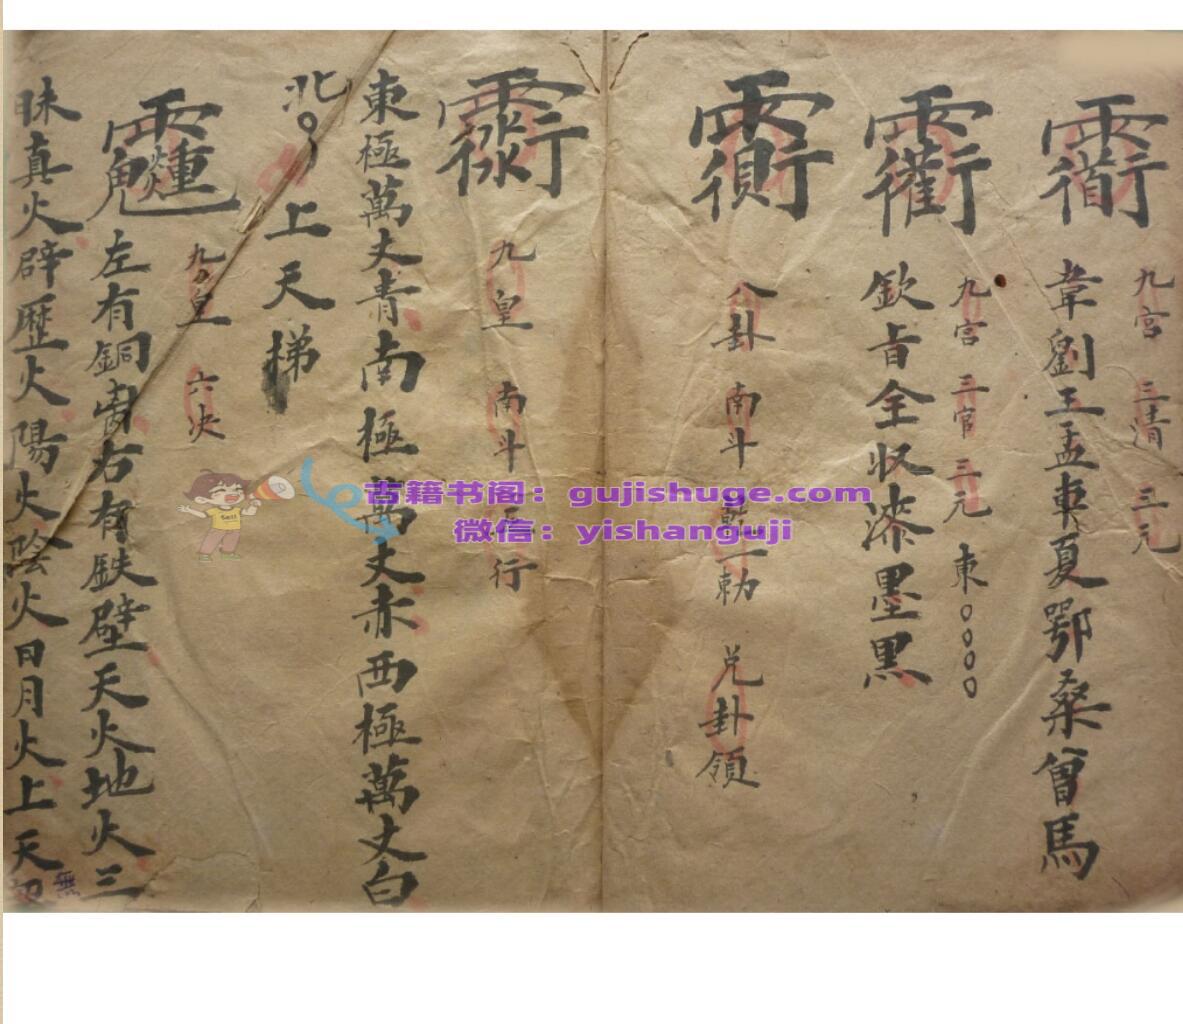 九宮 三清 三元
韋劉王孟車夏鄂桑曾馬
九宮 三官 三元 東
欽旨全収漆墨黑
八卦 南斗 乾一勅 兑卦領
九皇 南斗 行
東極萬丈青南極萬丈赤西極萬丈白
北 上天梯
九皇 六决
左有銅 右有鉄壁天火地火三
昧真火辟歷火陽火陰火日月火上天
無
古籍书阁：gujishuge.com
微信：yishanguji